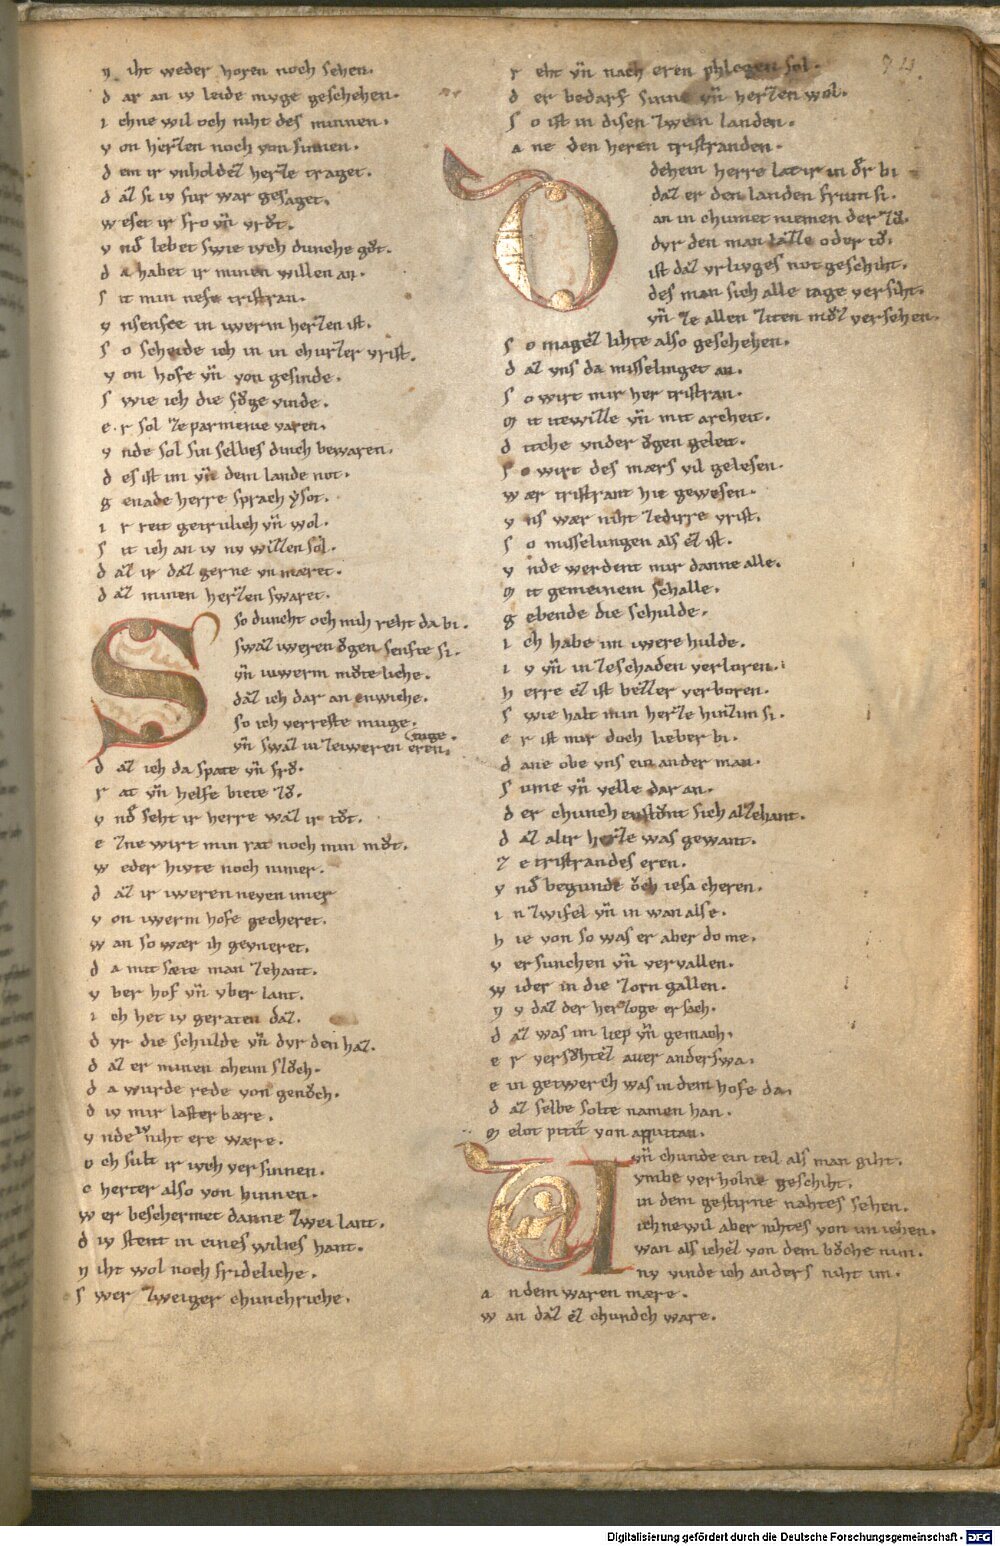 n iht weder horen noch sehen.
d ar an iv leide muge geschehen.
i chne wil och niht des minnen.
v on herzen noch von sinnen.
d em ir vnholdez herze traget.
d az si iv fur war gesaget.
w eset ir fro vn̄ vrͦt.
v nd̄ lebet swie iweh dunche gͦt.
d a habet ir minen willen an.
s it min nefe tristran.
v nsenfte in iwerm herzen ist.
s o scheide ich in in churzer vrist.
v on hofe vn̄ von gesinde.
s wie ich die fͦge vinde.
e r sol ze parmenie varen.
v nde sol sin selbes dinch bewaren.
d es ist im vn̄ dem lande not.
g enade herre sprach ysot.
i r reit getrulich vn̄ wol.
s it ich an iv nv willen sol.
d az ir daz gerne vn maret.
d az minen herzen swaret.
so duncht och mih reht da bi.
swaz iweren ͦgen senfte si.
vn̄ iuwerm mͦte liche.
daz ich dar an enwiche.
so ich verreste muge.
vn̄ swaz in zeiweren eren. tuge.
d az ich da spate vn̄ frͦ.
r at vn̄ helfe biete zͦ.
v nd̄ seht ir herre waz ir tͦt.
e zne wirt min rat noch min mͦt.
w eder hivte noch nimer.
d az ir iweren neven imer
v on iwerm hofe gecheret.
w an so wær ih gevneret.
d a mit sære man zehant.
v ber hof vn̄ vber lant.
i ch het iv geraten daz.
d vr die schulde vn̄ dvr den haz.
d az er minen oheim slͦch.
d a wurde rede von genͦch.
d iv mir laster bære.
v nde iv niht ere wære.
o ch sult ir iweh versinnen.
c herter also von hinnen.
w er beschermet danne zwei lant.
d iv stent in eines wibes hant.
n iht wol noch frideliche.
s wer zweiger chunchriche.
r eht vn̄ nach eren phlegen sol.
d er bedarf sinne vn̄ herzen wol.
s o ist in disen zwein landen.
a ne den heren tristranden.
dehein herre lat ir in dr bi
daz er den landen frum si.
an in chumet niemen der zͦ.
dvr den man lazze oder tͦ.
ist daz vrlivges not geschiht.
des man sich alle tage versiht.
vn̄ ze allen ziten mͦz versehen.
s o magez lihte also geschehen.
d az vns da misselinget an.
s o wirt mir her tristran.
m it itewille vn̄ mit archeit.
d icche vnder ͦgen geleit.
s o wirt des mærs vil gelesen.
w ær tristrant hie gewesen.
v ns wær niht zedirre vrist.
s o misselungen als ez ist.
v nde werdent mir danne alle.
m it gemeinem schalle.
g ebende die schulde.
i ch habe im iwere hulde.
i v vn̄ in zeschaden verloren.
h erre ez ist bezzer verboren.
s wie halt min herze hinzim si.
e r ist mir doch lieber bi.
d ane obe vns ein ander man.
s ume vn̄ velle dar an.
d er chunch enstͦnt sich alzehant.
d az alir herze was gewant.
z e tristrandes eren.
v nd̄ begunde ͦch iesa cheren.
i n zwifel vn̄ in wan alse.
h ie von so was er aber do me.
v ersunchen vn̄ vervallen.
w ider in die zorn gallen.
n v daz der herzoge ersach.
d az was im liep vn̄ gemach.
e r versͦhtez auer anderswa.
e in getwerch was in dem hofe da.
d az selbe solte namen han.
m elot pitit von aquitan.
vn̄ chunde ein teil als man giht.
vmbe verholne geschiht.
in dem gestirne nahtes sehen.
ichne wil aber nihtes von im iehen.
wan als ichez von dem bͦche nim.
nv vinde ich anders niht im.
a n dem waren mære.
w an daz ez chundch ware.
Digitalisierung gefördert durch die Deutsche Forschungsgemeinschaft - DFG